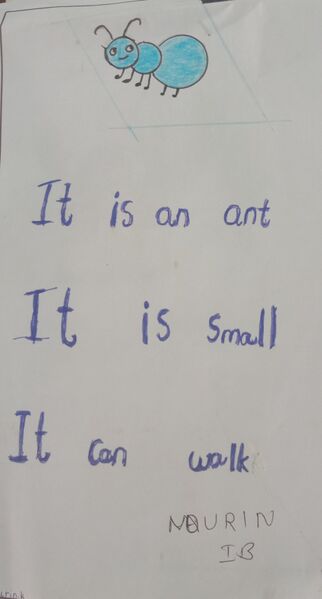 It is an ant
It is small
It can walk
NOURIN
IB